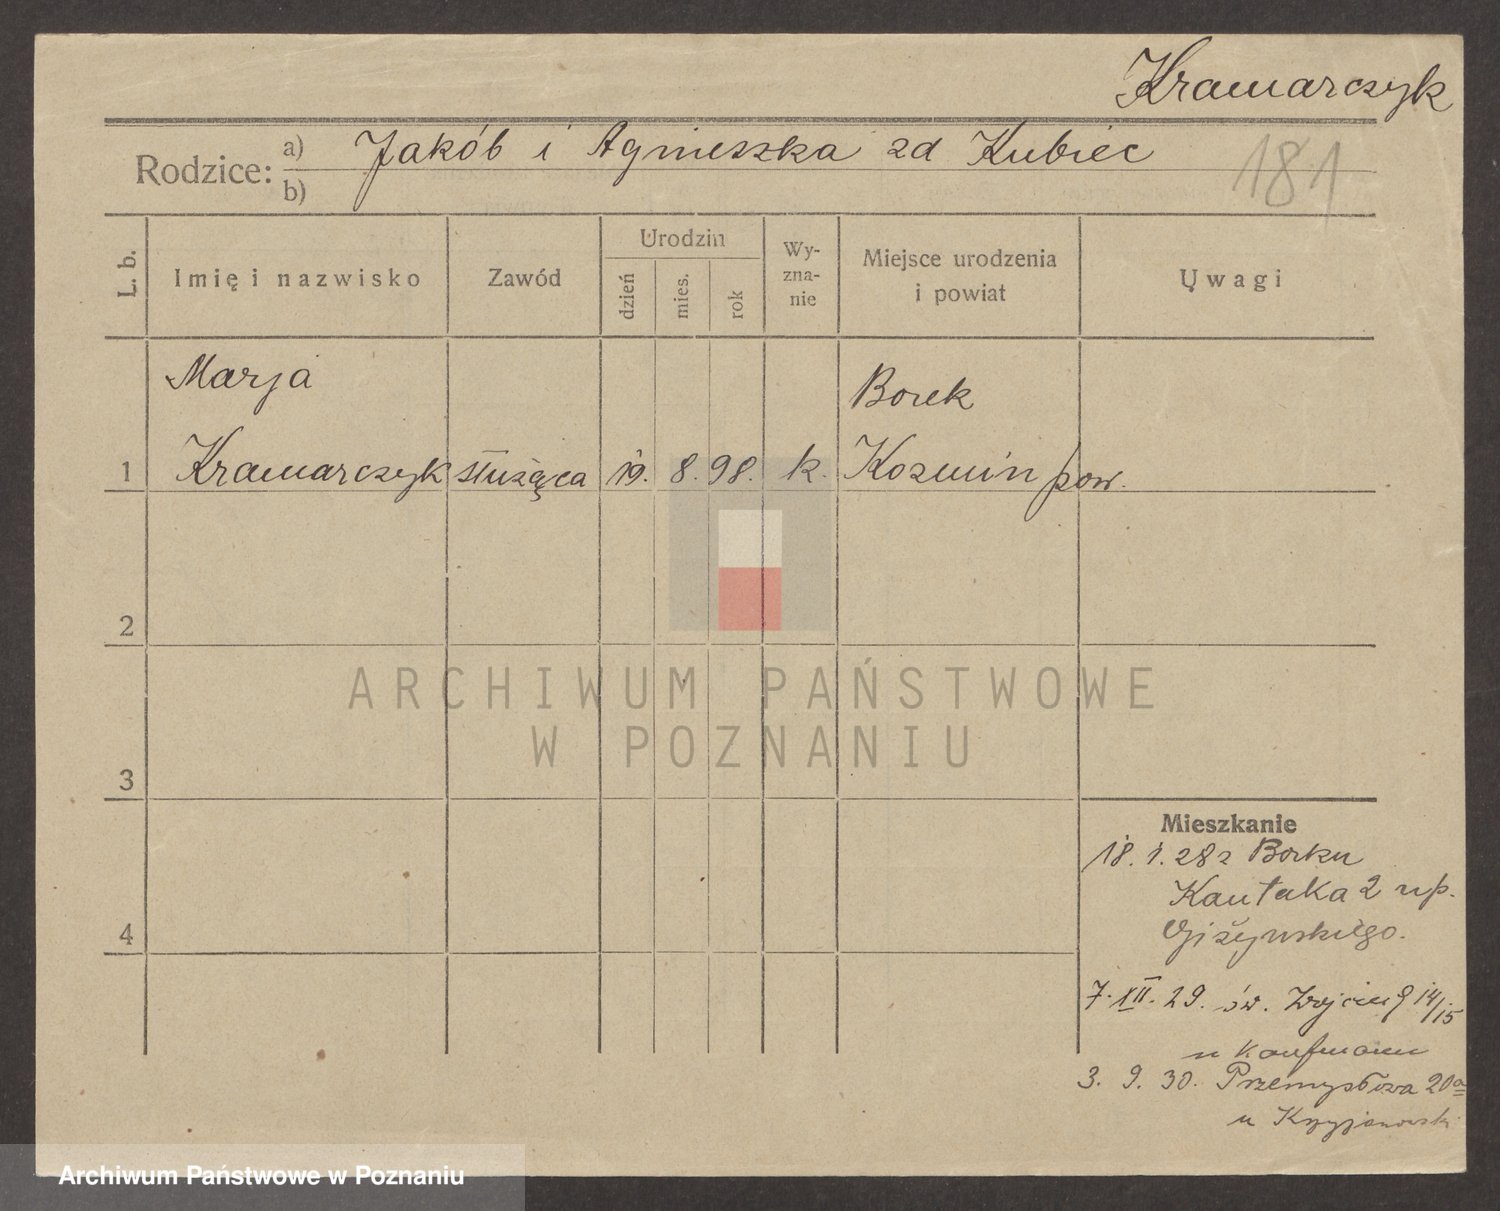 Kramarczyk
Rodzice: a) Jakób i Agnieszka zd Kubiec
b)
181
L. b.
Imię i nazwisko
Zawód
Urodzin
dzień
mies.
rok
Wy-
zna-
nie
Miejsce urodzenia
i powiat
Uwagi
Marja
Borek
1 Kramarczyk służąca 19. 8. 98. k. Kozmin pow.
2
ARCHIWUM PAŃSTWOWE
W POZNANIU
3
Mieszkanie
18. 1. 28 z Borku
Kantaka 2 u p.
Giżyńskiego.
4
7. XII. 29. św. Wojciech 14/15
u Kaufmann
3. 9. 30. Przemysłowa 20a
u Krzyżanowski
Archiwum Państwowe w Poznaniu